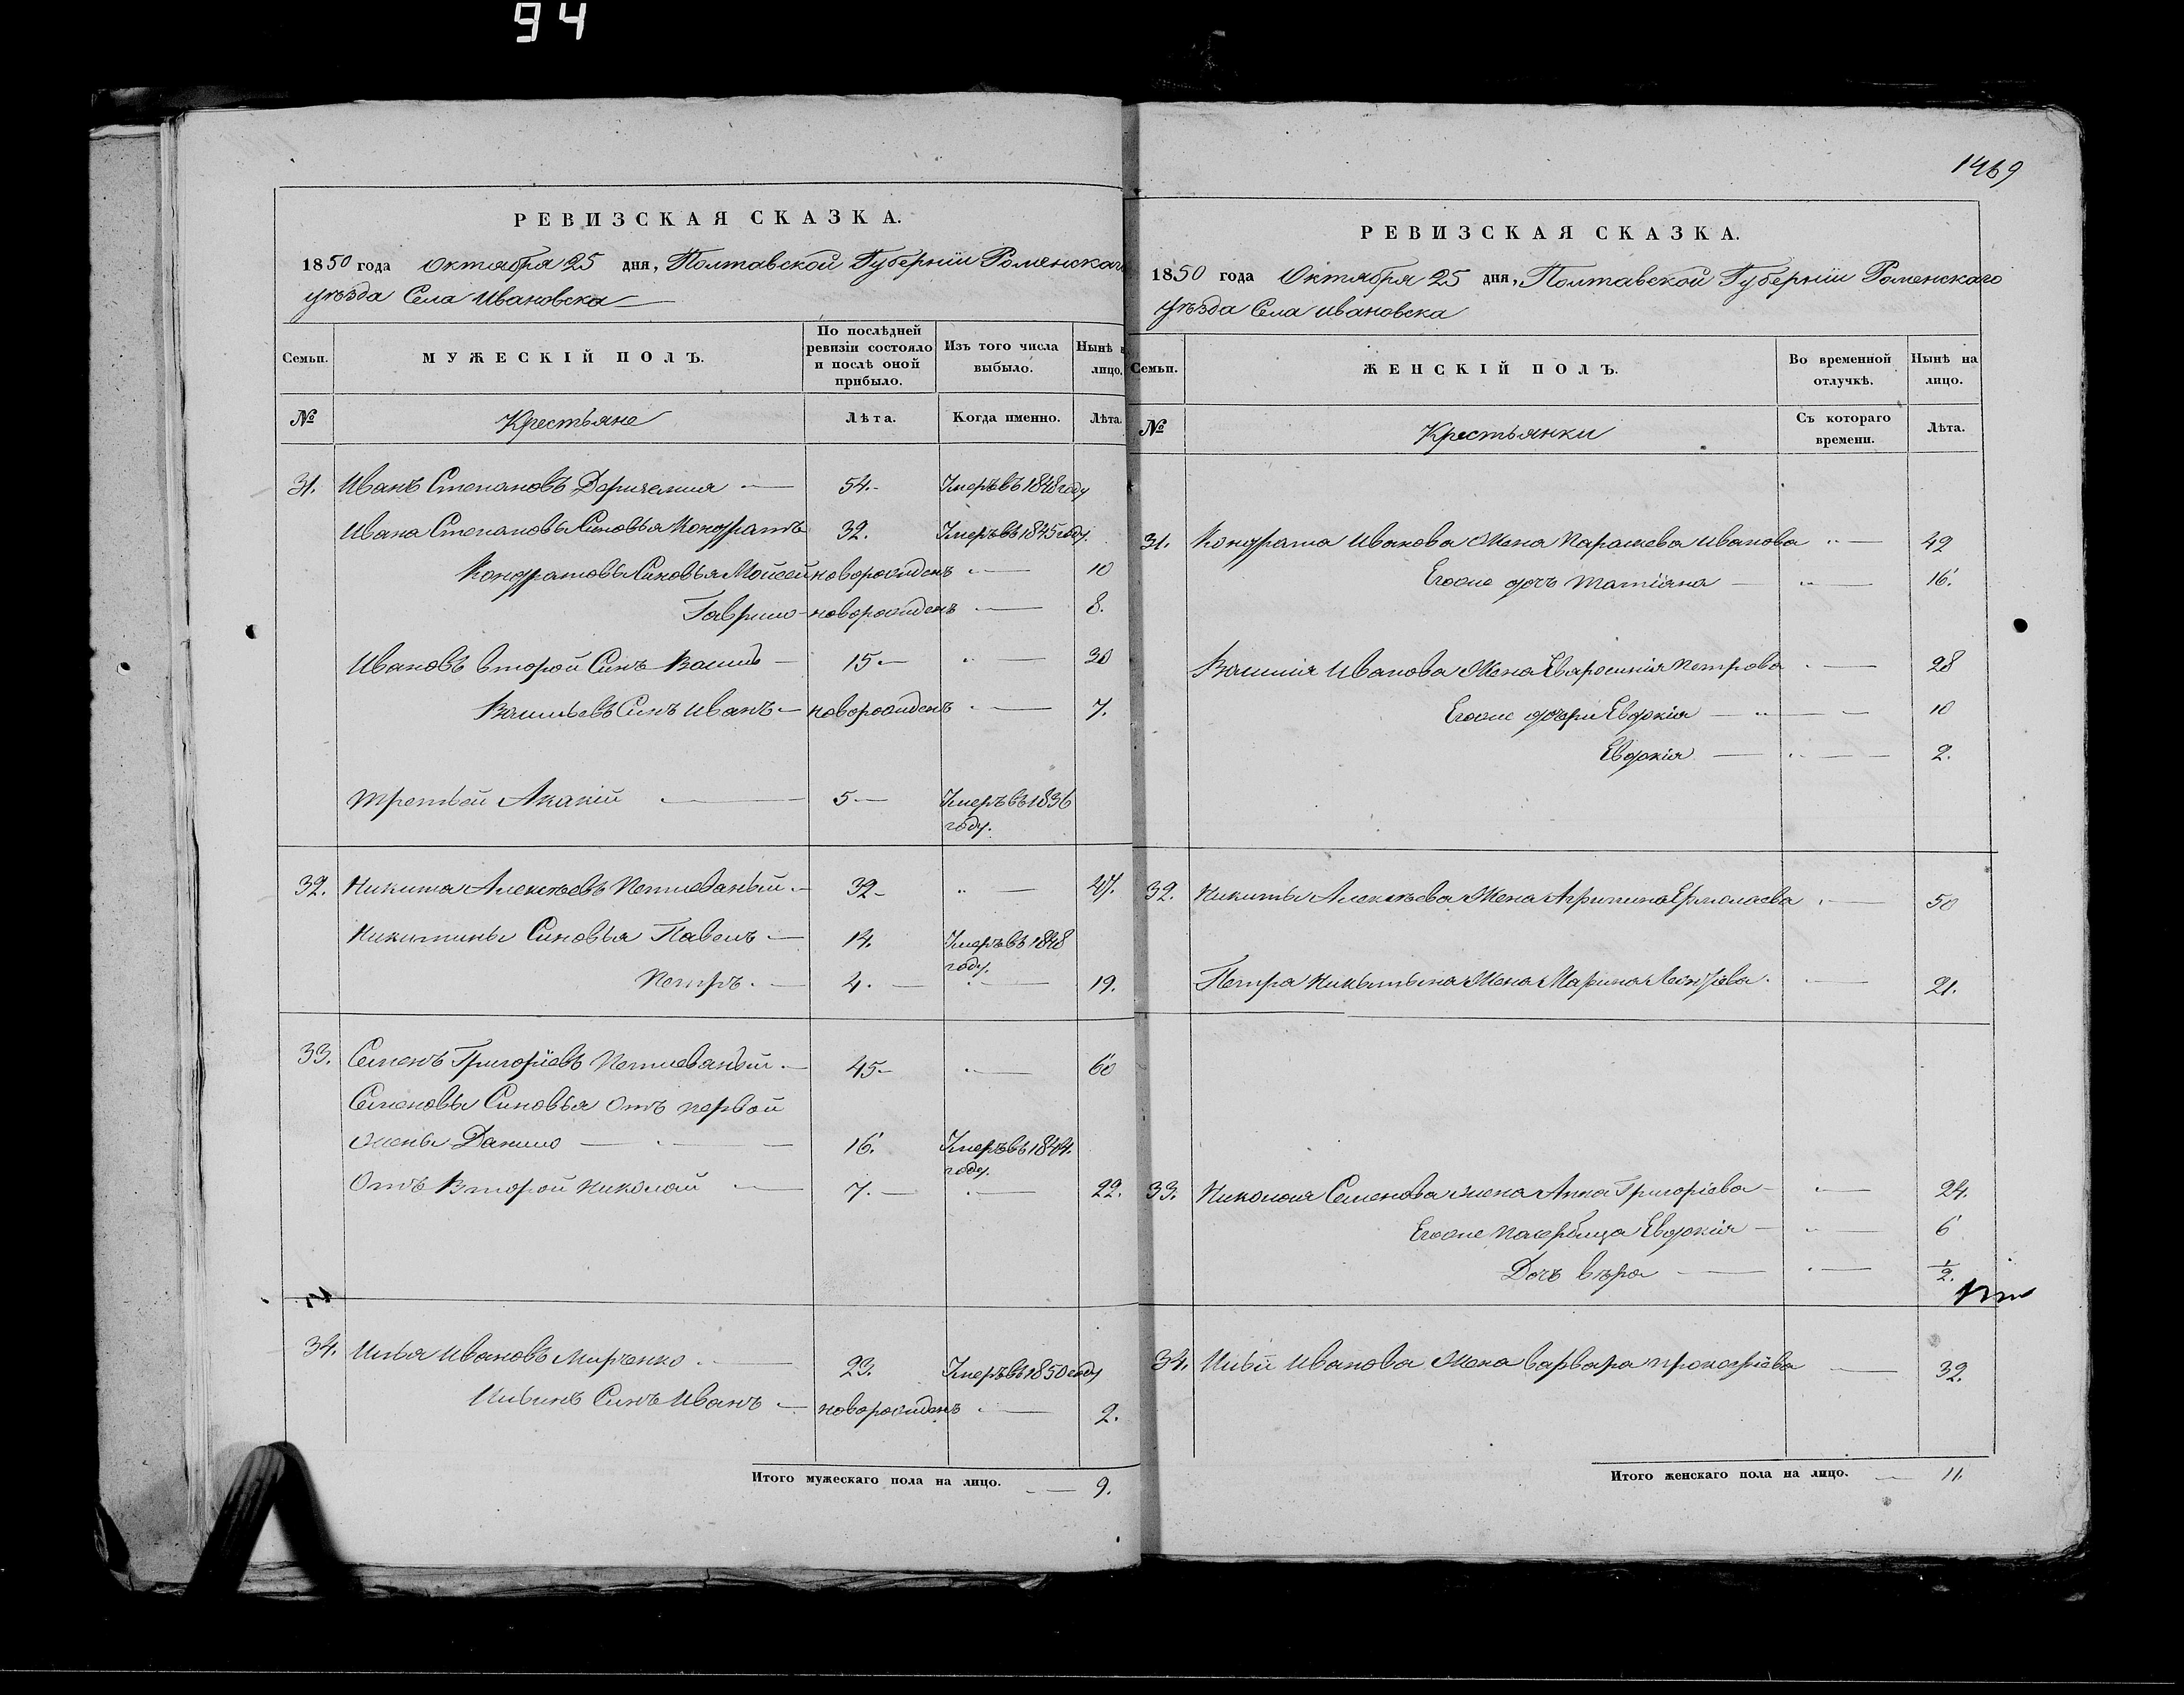 94
1469
РЕВИЗСКАЯ СКАЗКА.
1850 года Октября 25 дня, Полтавской Губернїи Роменскаго
уѣзда Села Ивановска
Семьи. МУЖЕСКІЙ ПОЛЪ. По послѣдней ревизіи состояло и послѣ оной прибыло. Изъ того числа выбыло. Нынѣ на лицо.
№ Крестьяне Лѣта. Когда именно. Лѣта.
31. Иванъ Степановъ 54. Умеръ въ 1848 году
Ивана Степановы Синовья Кондратъ 32. Умеръ въ 1845 году.
Кондратовы Синовья Мойсей новорожденъ 10
Гаврило новорожденъ 8.
Ивановъ второй Синъ Василь 15 30
Васильевъ Синъ Иванъ новорожденъ 7.
третьей Акакій 5 Умеръ въ 1836
году.
32. Никита Алексѣевъ 32 47.
Никитины Синовья Павелъ 14. Умеръ въ 1848
году.
Петръ 4. 19.
33. Семенъ Григорїевъ 45 60
Семеновы Синовья Отъ первой
жены Данило 16. Умеръ въ 1844.
году.
Отъ Второй Николай 7. 22.
34. Илья Ивановъ Мирченко 23. Умеръ въ 1850 году
Ильинъ Синъ Иванъ новорожденъ 2.
Итого мужескаго пола на лицо. 9.
РЕВИЗСКАЯ СКАЗКА.
1850 года Октября 25 дня, Полтавской Губернїи Роменскаго
Уѣзда Села Ивановска
Семьи. ЖЕНСКІЙ ПОЛЪ. Во временной отлучкѣ. Нынѣ на лицо.
№ Крестьянки Съ котораго времени. Лѣта.
31. Кондрата Иванова Жена Параскева Иванова 42
Егоже дочъ Татіяна 16.
Василия Иванова Жена Петрова 28
Егоже дочери Евдокія 10
Евдокія 2.
32. Никиты Алексѣева Жена Агрипина Ермолаева 50
Петра Никитина Жена Марина 21.
33. Николая Семенова жена Анна Григоріева 24.
Егоже Пасербица Евдокія 6
Дочъ Вѣра 1/2.
34. Ильи Иванова Жена Варвара Прокофіева 32.
Итого женскаго пола на лицо. 11.